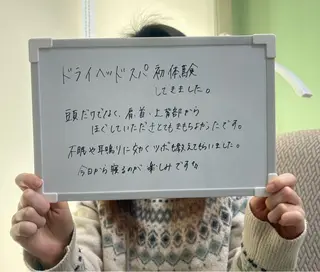 ドライヘッドスパ初体験
してきました。
頭だけでなく、肩・首・上背部から
ほぐしていただきとてもきもちよかったです。
不眠や耳鳴りに効くツボも教えてもらいました。
今日から寝るのが楽しみです。